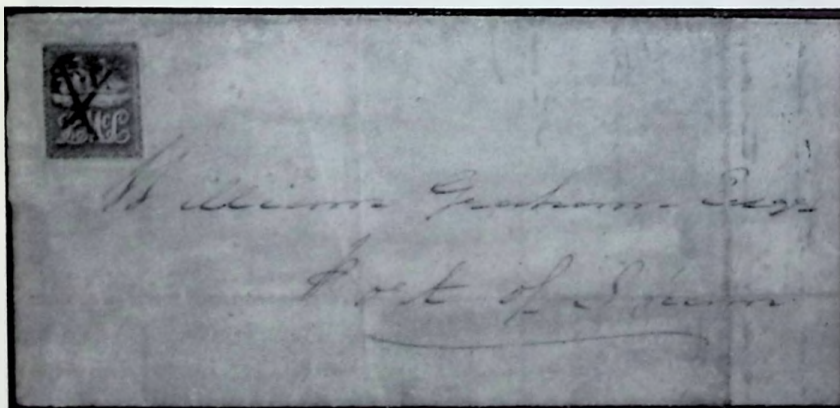 William Graham Esqr
Port of Spain